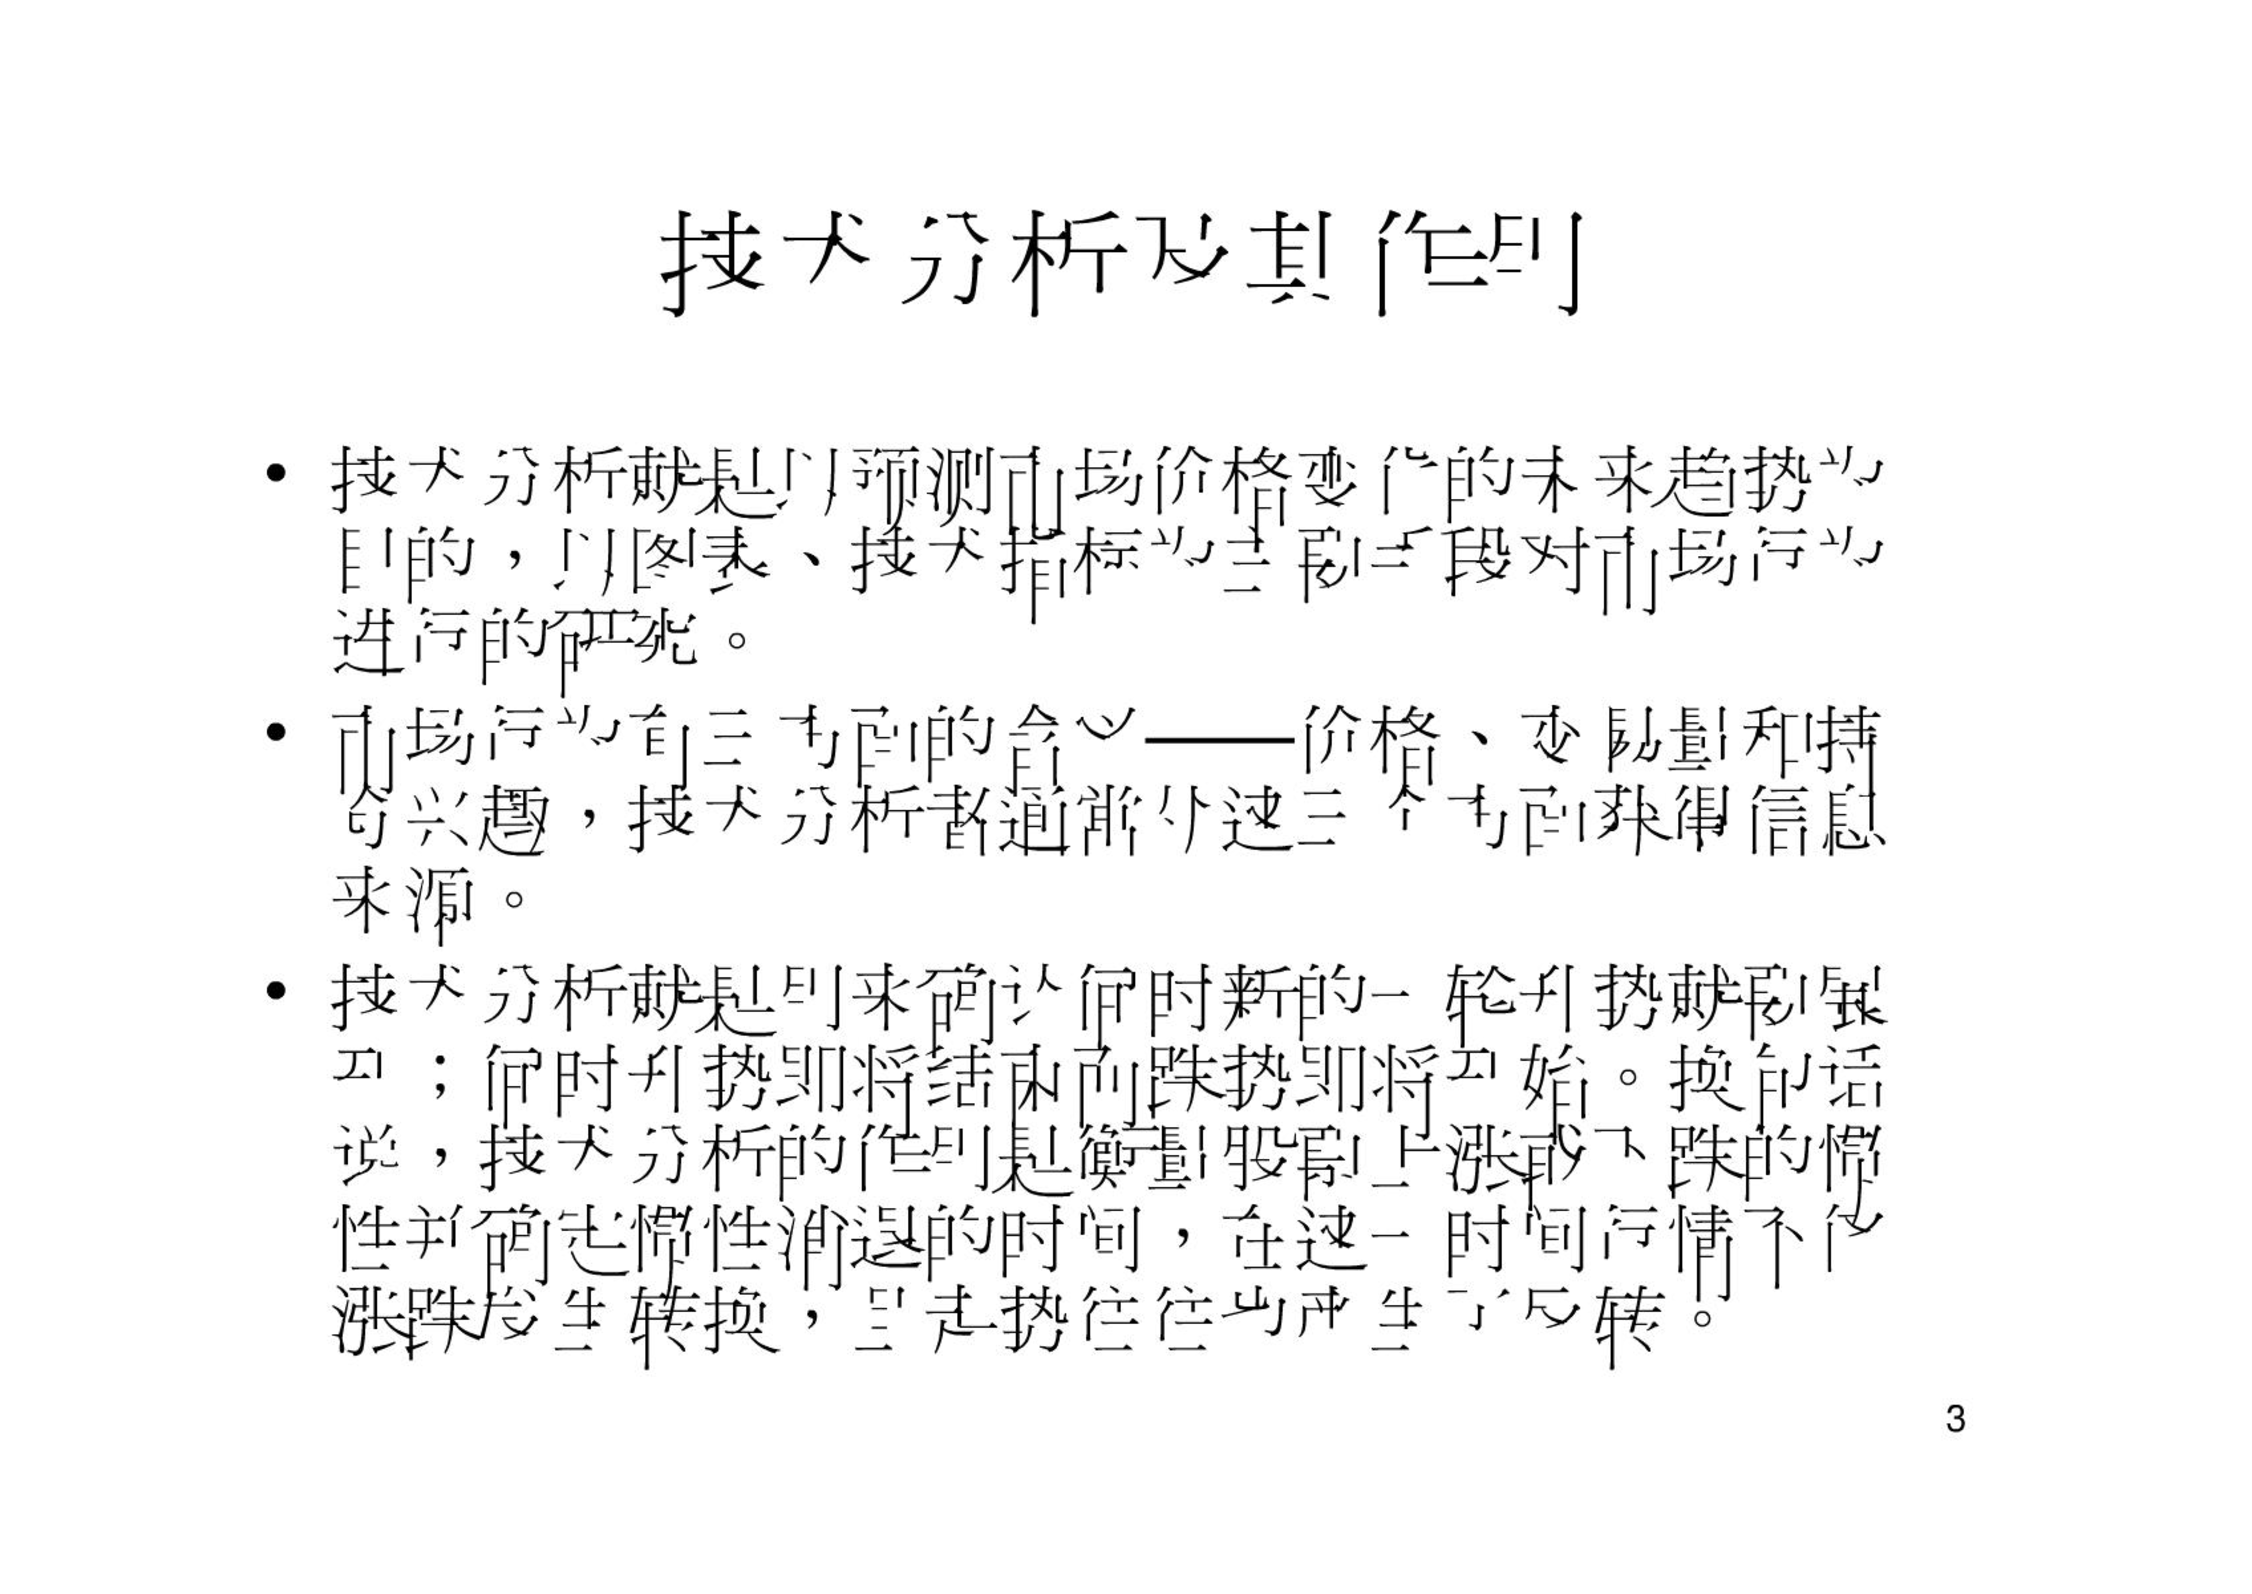 技术分析及其作用
• 技术分析就是以预测市场价格变化的未来趋势为
目的，以图表、技术指标为主要手段对市场行为
进行的研究。
• 市场行为有三方面的含义——价格、交易量和持
仓兴趣，技术分析者通常从这三个方面获得信息
来源。
• 技术分析就是用来确认何时新的一轮升势就要展
开；何时升势即将结束而跌势即将开始。换句话
说，技术分析的作用是衡量股票上涨或下跌的惯
性并确定惯性消退的时间，在这一时间行情不仅
涨跌发生转换，且走势往往也产生了反转。
3